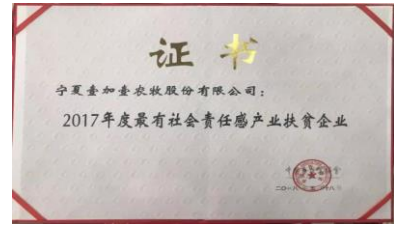 证书
宁夏壹加壹农牧股份有限公司：
2017年度最有社会责任感产业扶贫企业